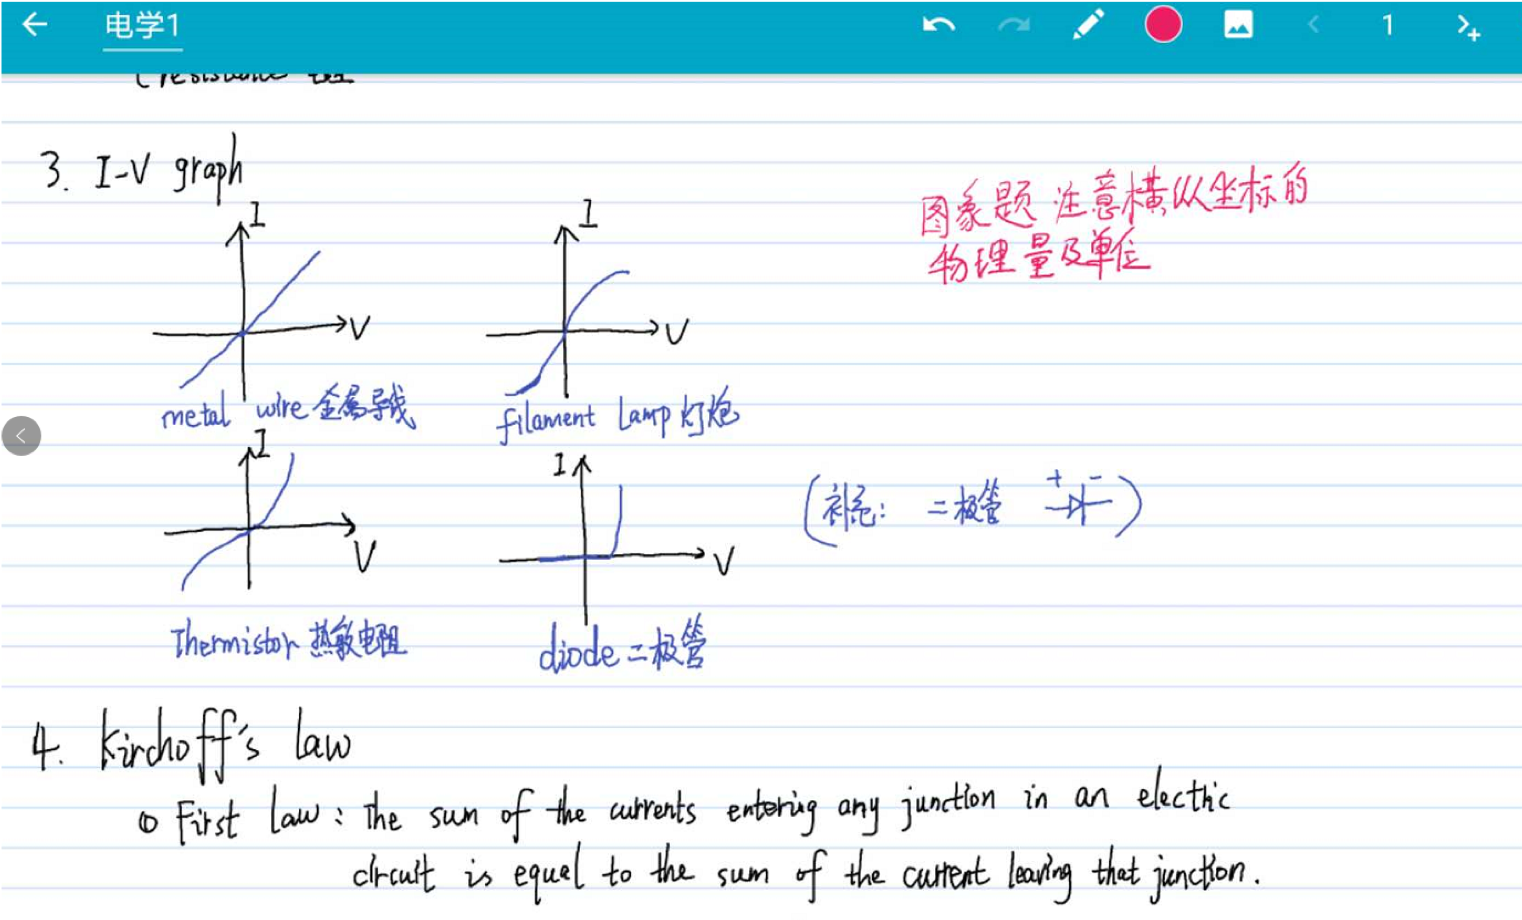 电学1
1
(resistance 电阻
3. I-V graph
图象题 注意横纵坐标的
物理量及单位
I
V
metal wire 金属导线
I
V
filament lamp 灯炮
I
V
Thermistor 热敏电阻
I
V
diode 二极管
(补充: 二极管 + - )
4. Kirchoff's law
① First law: The sum of the currents entering any junction in an electric
circuit is equal to the sum of the current leaving that junction.